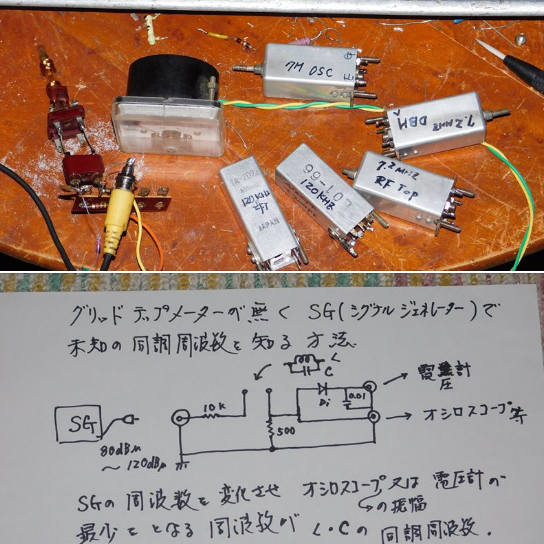 7M OSC
7.2MHz DBM
7.2MHz
RF TOP
L01-66
120KHz
120KHz
JAPAN
グリッド デップメーターが無く SG(シグナル ジェネレーター)で
未知の同調周波数を知る方法.
L
C
10K
Di
0.01
500
電圧計
オシロスコープ等
SG
80dBμ
～120dBμ
SGの周波数を変化させ オシロスコープ又は電圧計の
の振幅
最少ととなる周波数がL・Cの同調周波数.